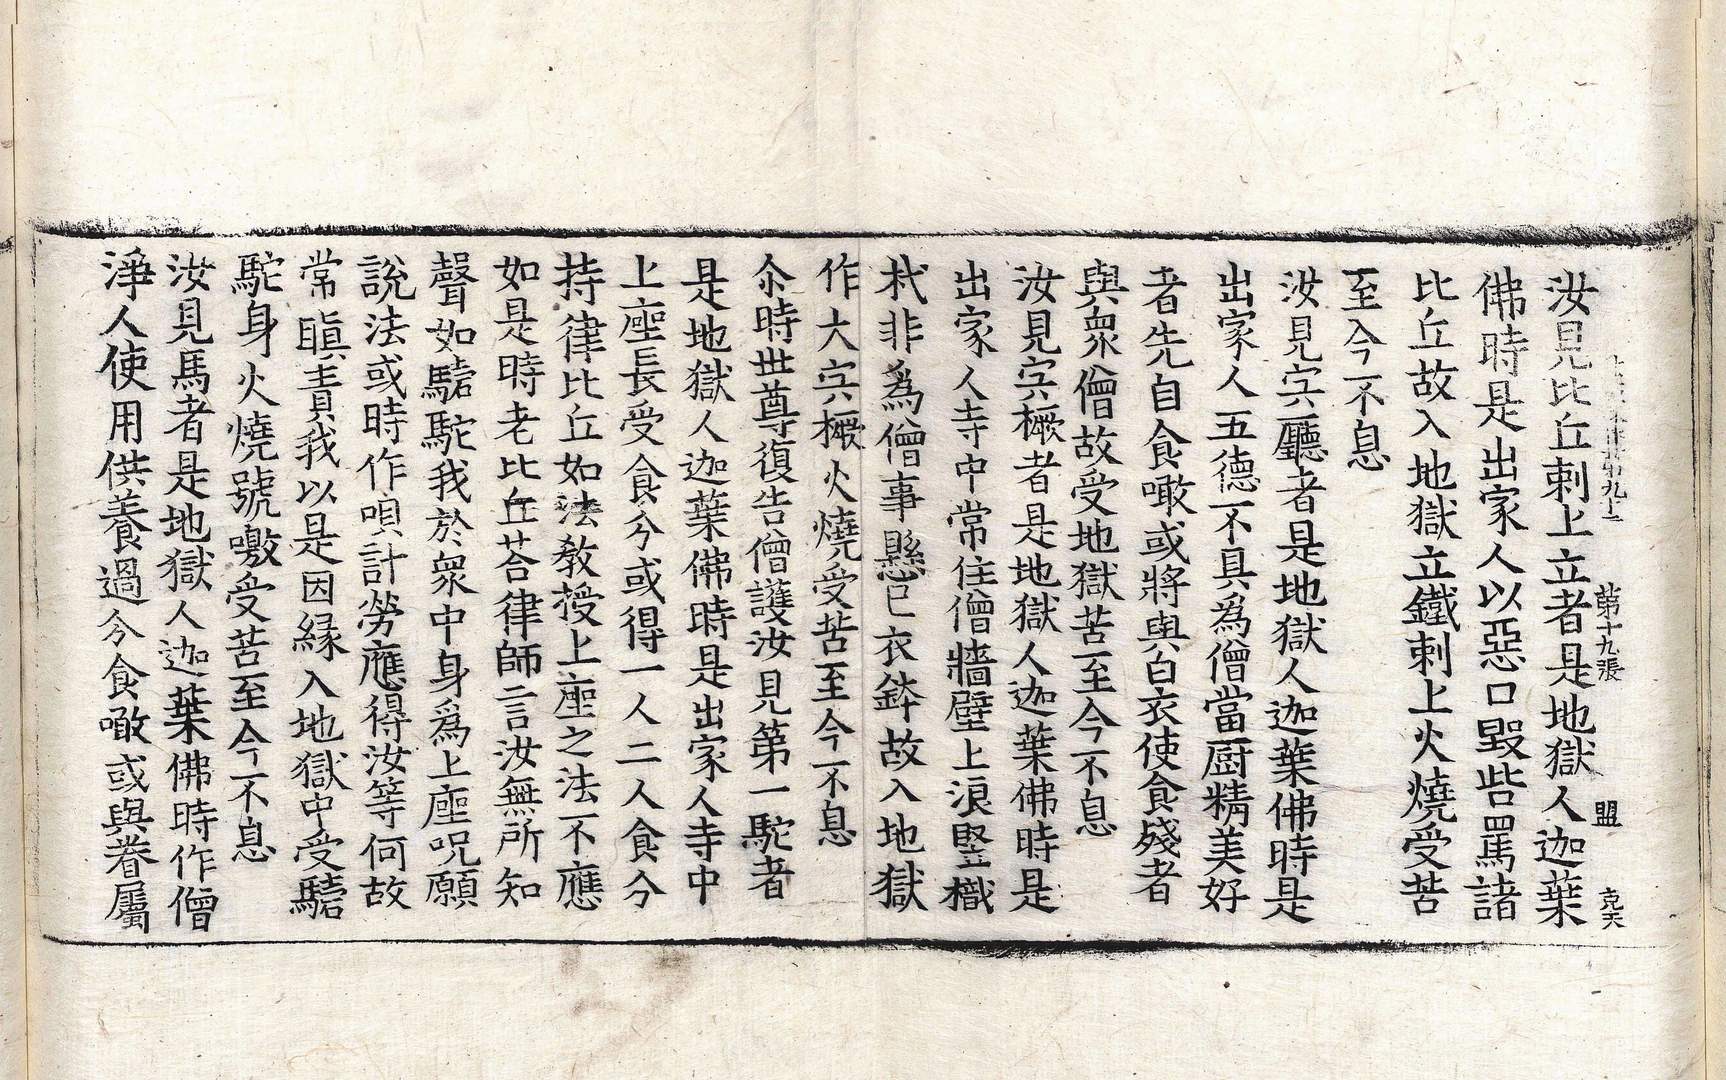 第十九張 盟 克天
汝見比丘刺上立者是地獄人迦葉
佛時是出家人以惡口毀呰罵諸
比丘故入地獄立鐵刺上火燒受苦
至今不息
汝見宍廳者是地獄人迦葉佛時是
出家人五德不具為僧當厨精美好
者先自食噉或將與白衣使食殘者
與衆僧故受地獄苦至今不息
汝見宍橛者是地獄人迦葉佛時是
出家人寺中常住僧牆壁上浪竪檝
杙非為僧事懸己衣鉢故入地獄
作大宍橛火燒受苦至今不息
尒時世尊復告僧護汝見第一駝者
是地獄人迦葉佛時是出家人寺中
上座長受食分或得一人二人食分
持律比丘如法教授上座之法不應
如是時老比丘荅律師言汝無所知
聲如驢駝我於衆中身爲上座呪願
說法或時作唄計勞應得汝等何故
常瞋責我以是因緣入地獄中受驢
駝身火燒號噭受苦至今不息
汝見馬者是地獄人迦葉佛時作僧
淨人使用供養過分食噉或與眷屬